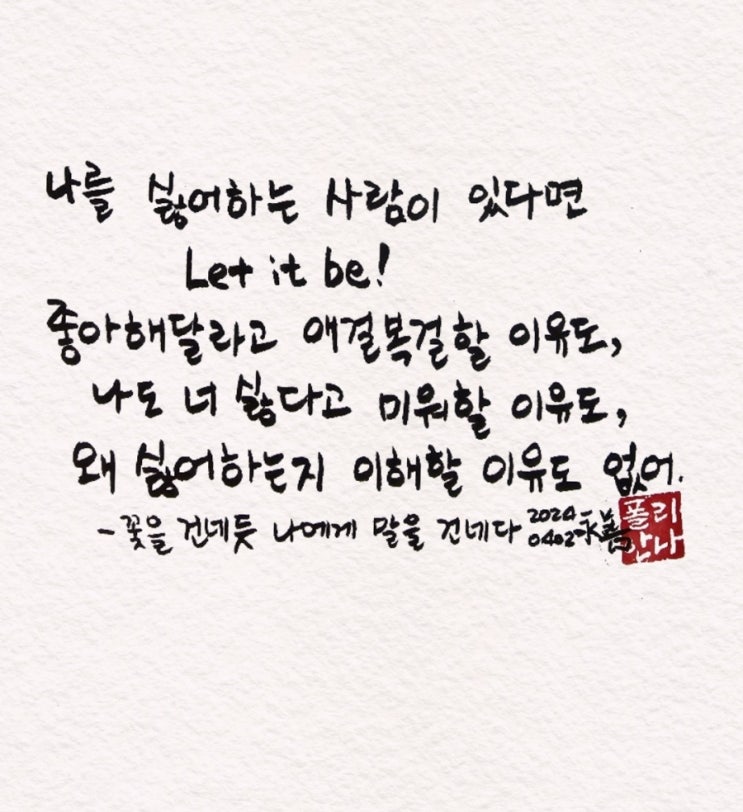 나를 싫어하는 사람이 있다면
Let it be!
좋아해달라고 애걸복걸할 이유도,
나도 너 싫다고 미워할 이유도,
왜 싫어하는지 이해할 이유도 없어.
-꽃을 건네듯 나에게 말을 건네다 2024
0402
폴리
안나